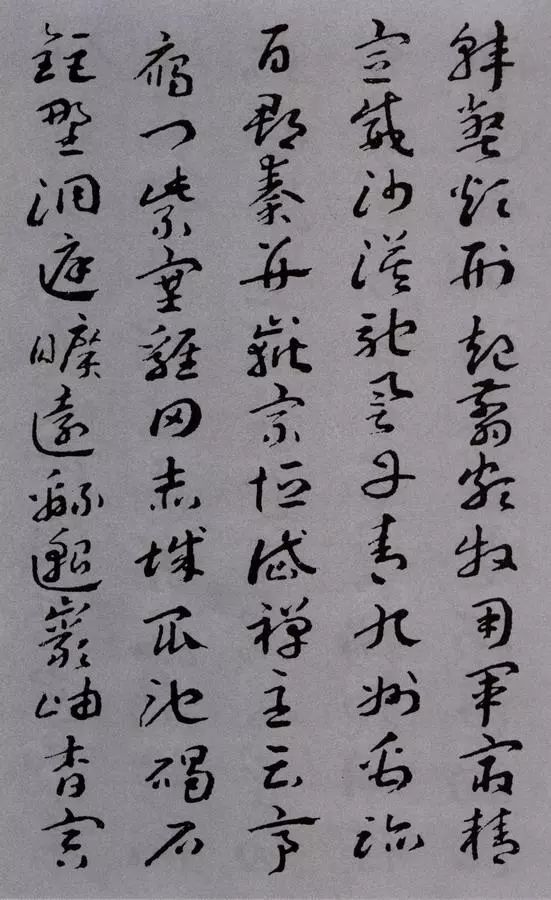 韓弊煩刑起翦頗牧用軍最精
宣威沙漠馳譽丹青九州禹跡
百郡秦并嶽宗恒岱禪主云亭
鴈門紫塞雞田赤城昆池碣石
鉅野洞庭曠遠緜邈巖岫杳冥